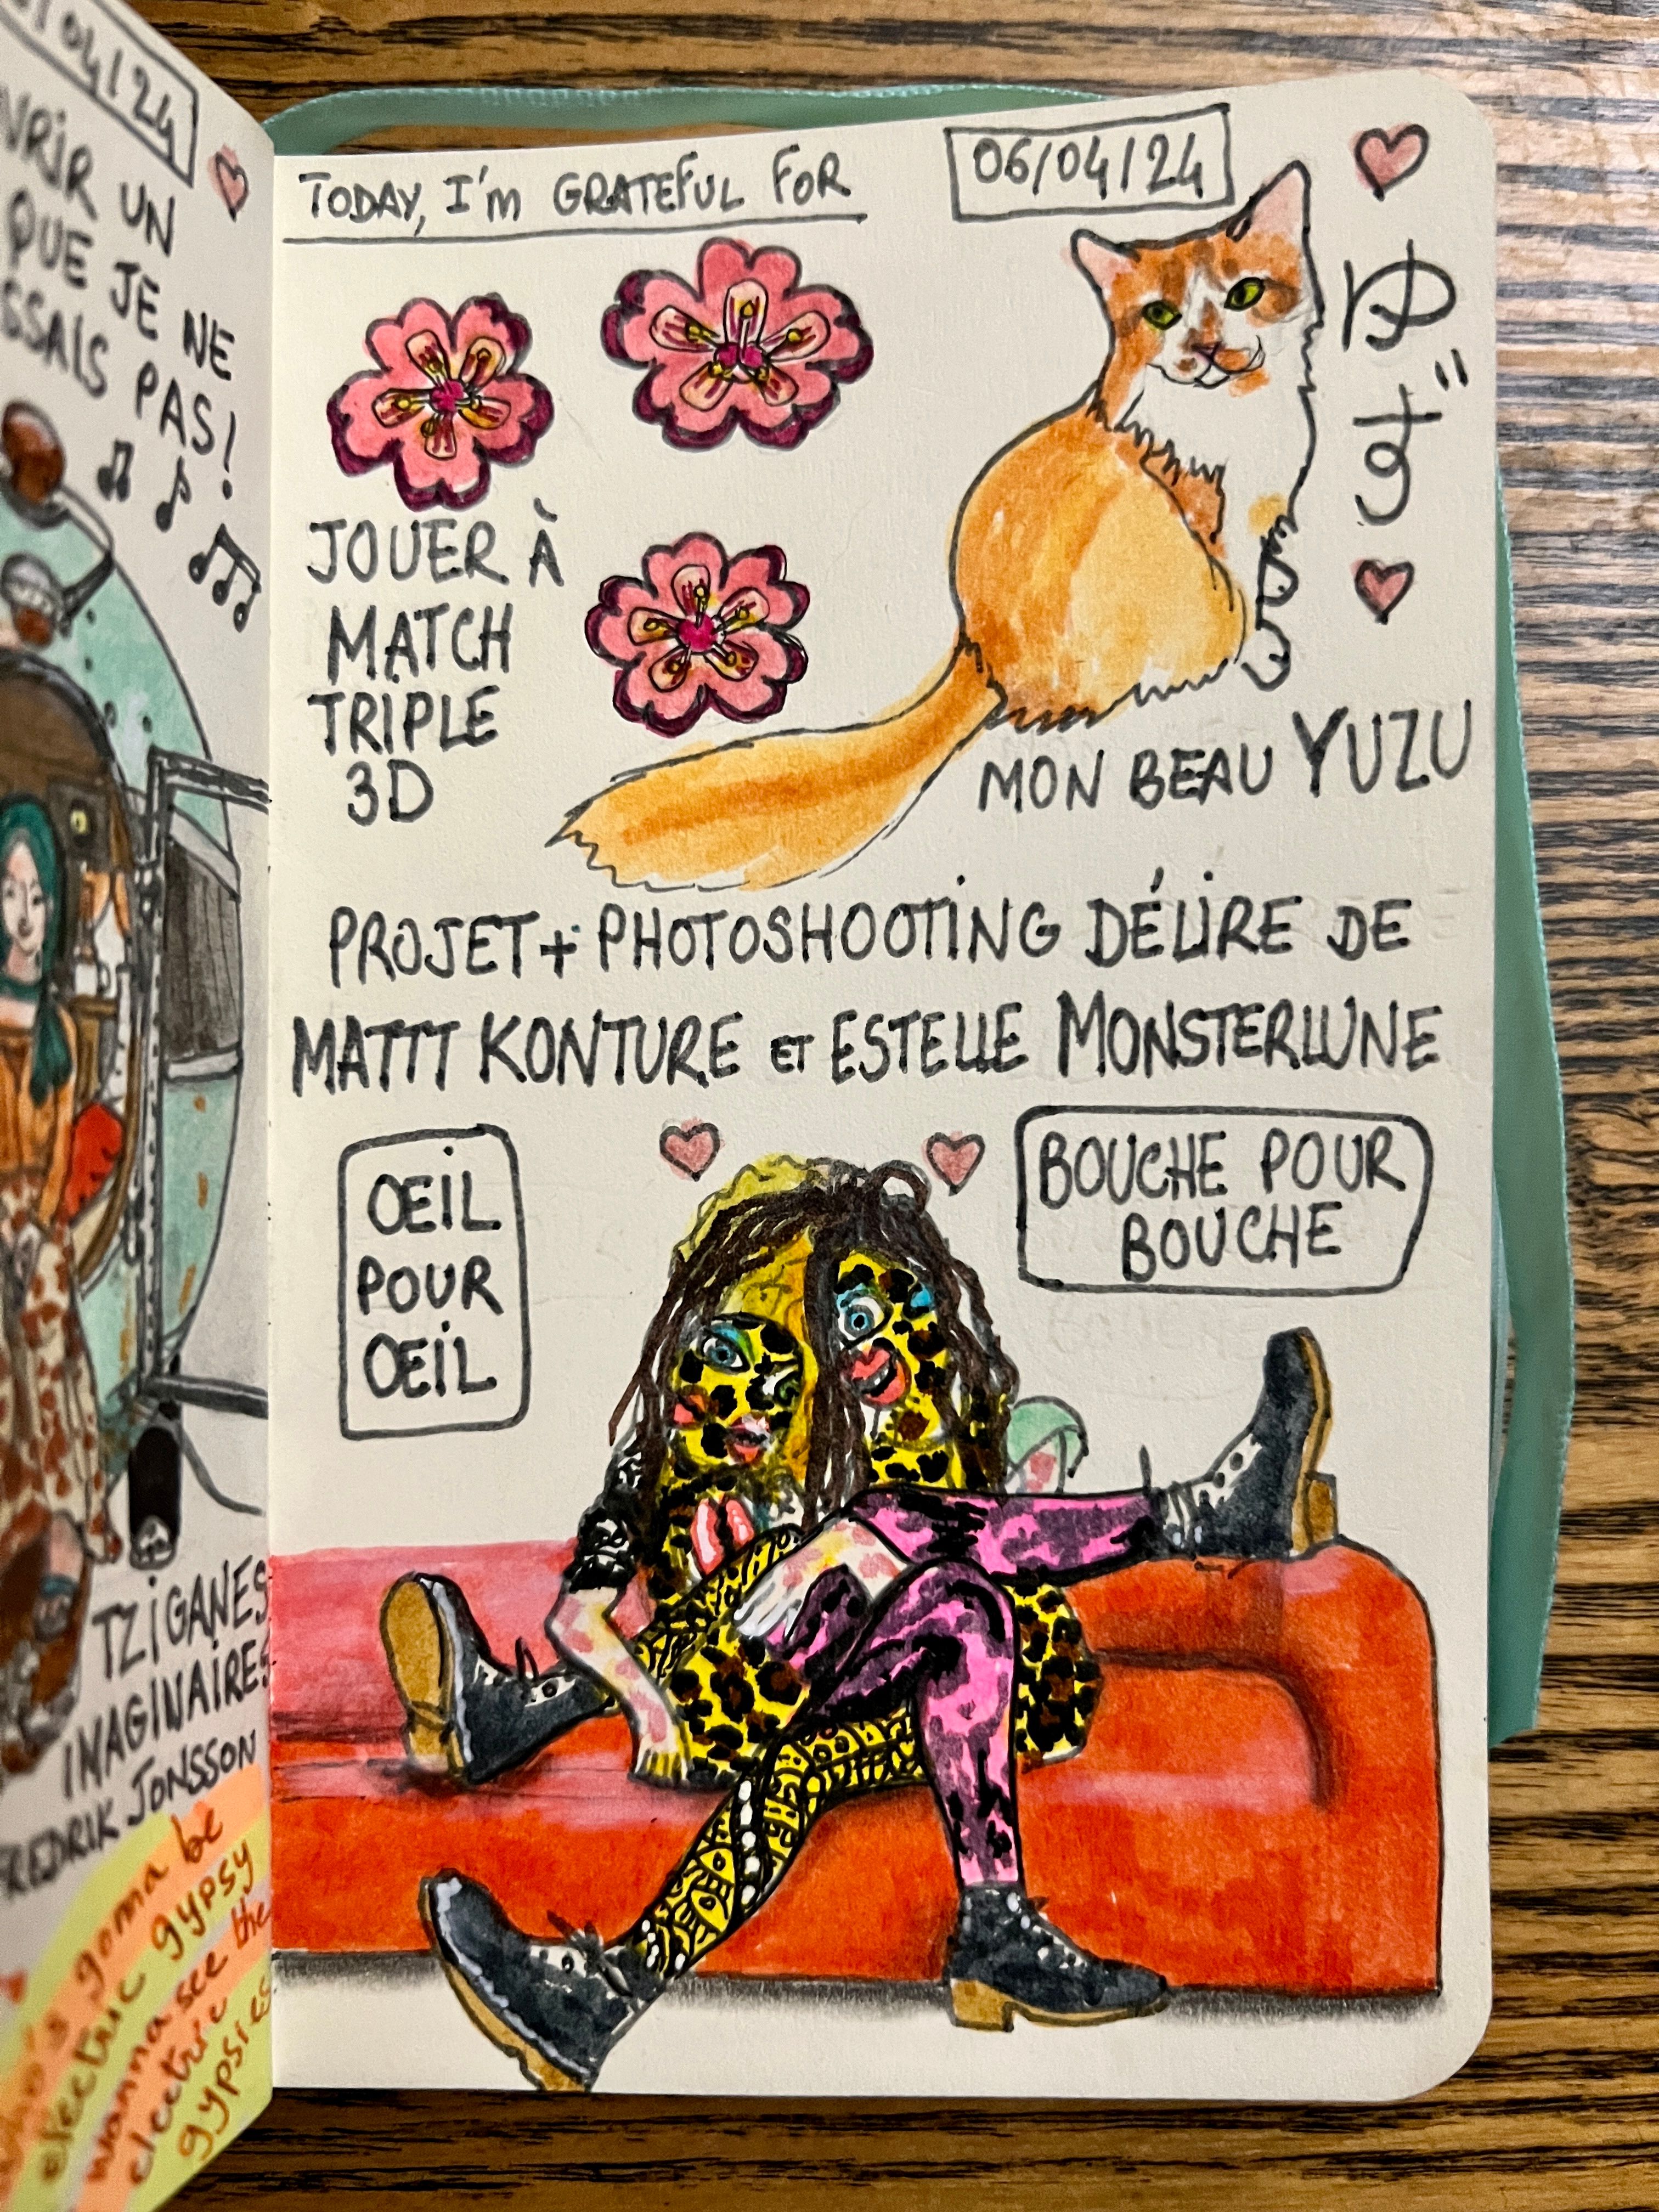 /04/24
UN
QUE JE NE
PAS!
TZIGANES
IMAGINAIRES
FREDRIK JONSSON
gonna be
electric gypsy
wanna see the
electric
gypsies
TODAY, I'm GRATEFUL FOR
06/04/24
ゆず
JOUER À
MATCH
TRIPLE
3D
MON BEAU YUZU
PROJET + PHOTOSHOOTING DÉLIRE DE
MATTT KONTURE ET ESTELLE MONSTERLUNE
OEIL
POUR
OEIL
BOUCHE POUR
BOUCHE